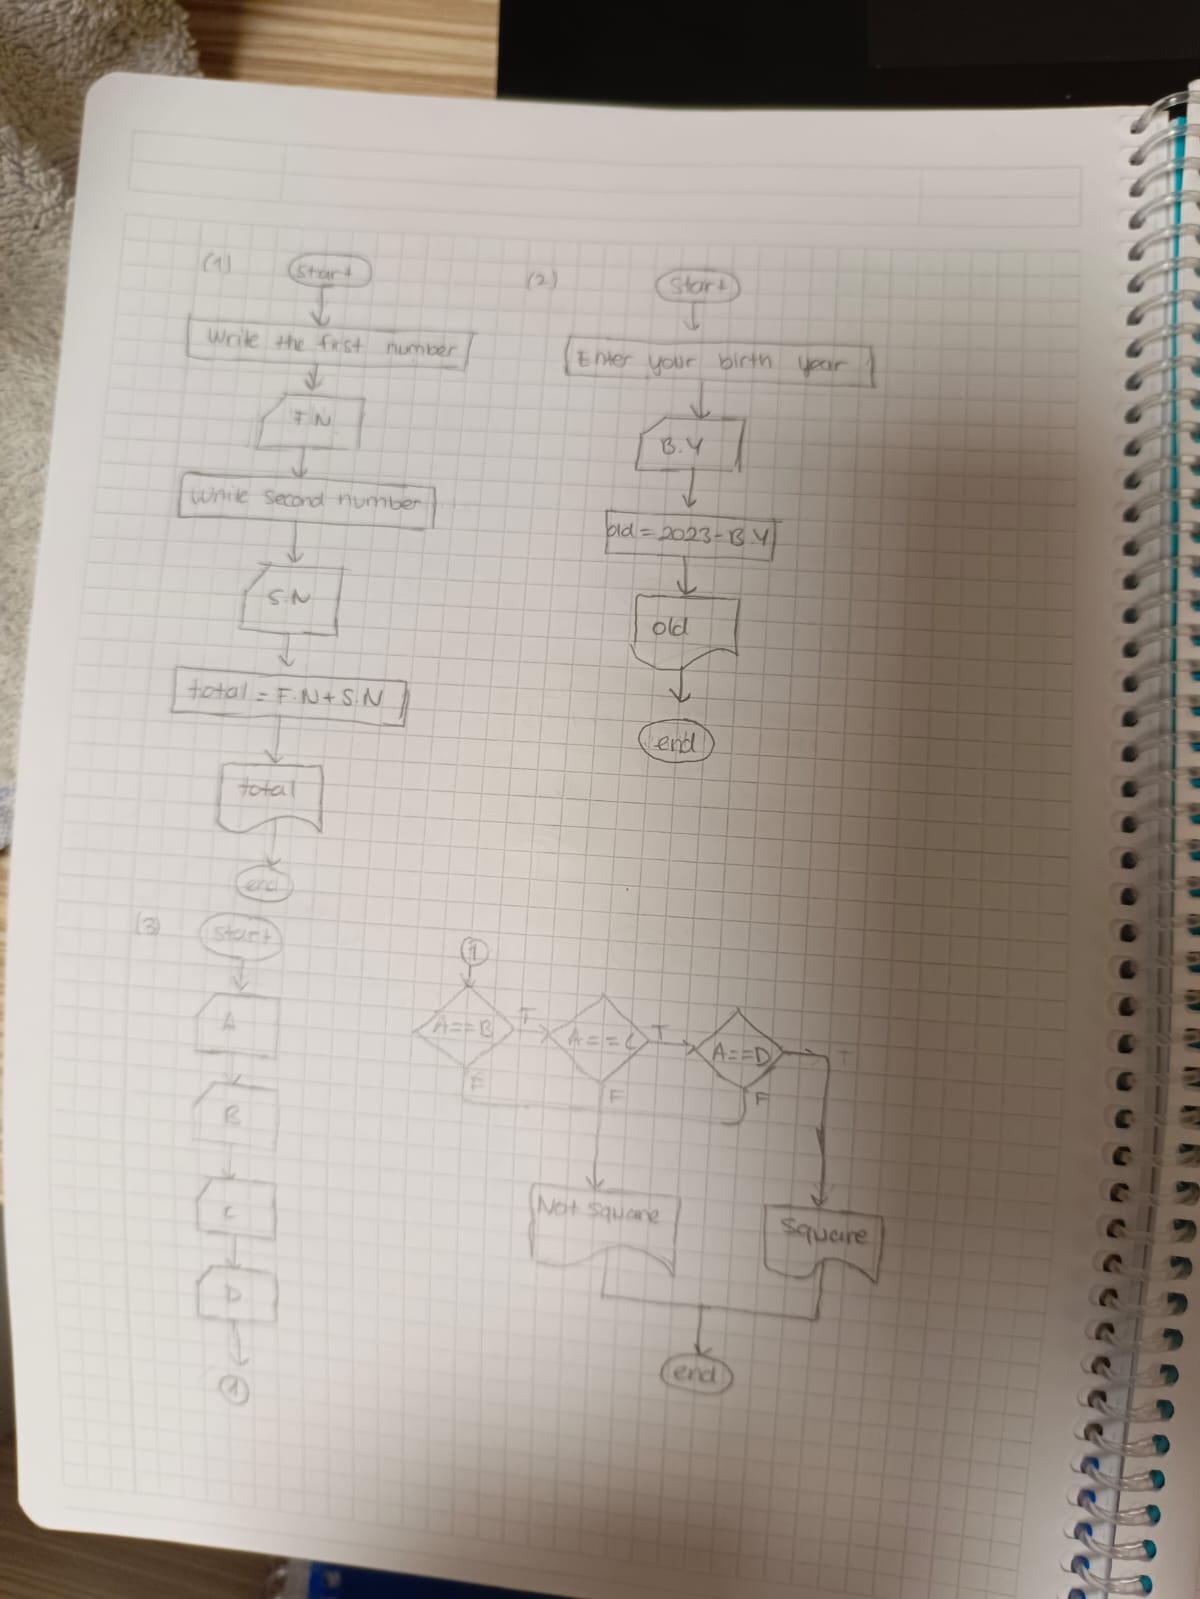 (1)
start
Write the first number
F.N
Write second number
S.N
total = F.N + S.N
total
end
(2)
start
Enter your birth year
B.Y
old = 2023 - B.Y
old
end
(3)
start
A
B
C
D
1
1
A==B T A==C T A==D T
F F F
Not square square
end